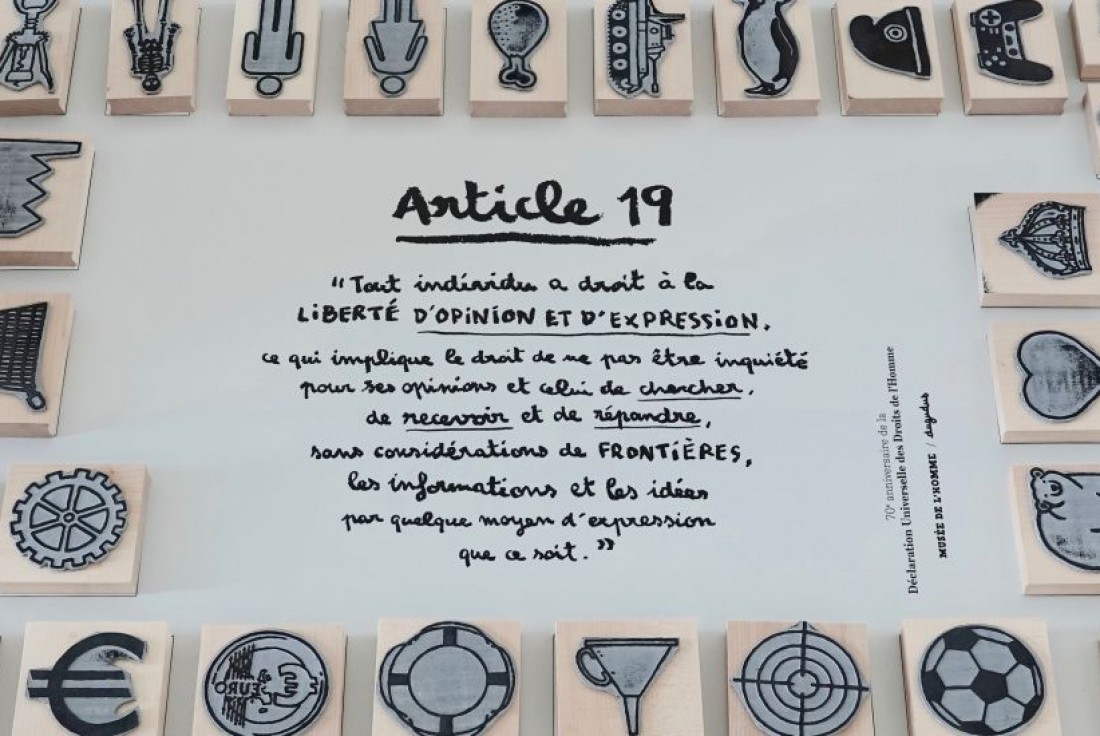 Article 19
“Tout individu a droit à la
LIBERTÉ D'OPINION ET D'EXPRESSION,
ce qui implique le droit de ne pas être inquiété
pour ses opinions et celui de chercher,
de recevoir et de répandre,
sans considérations de FRONTIÈRES,
les informations et les idées
par quelque moyen d'expression
que ce soit.”
70e anniversaire de la
Déclaration Universelle des Droits de l'Homme
MUSÉE DE L'HOMME /